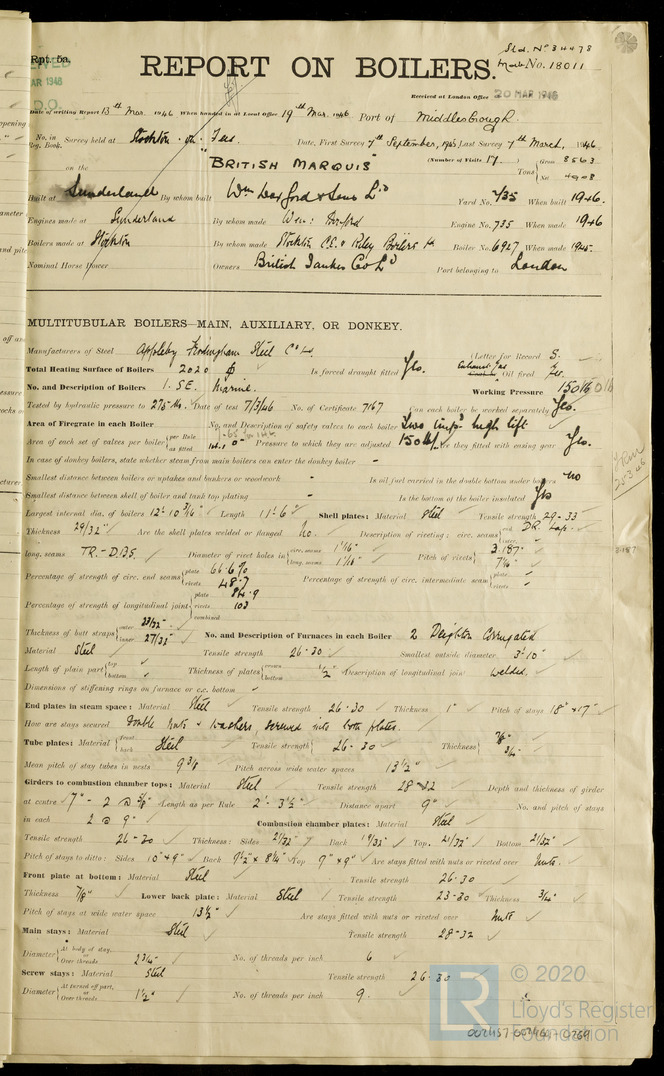 Rpt. 5a.
Sld. No 34478
REPORT ON BOILERS.
Mab No. 18011
Received at London Office 20 MAR 1946
Date of writing Report 13th Mar. 1946 When handed in at Local Office 19th Mar. 1946 Port of Middlesbrough.
No. in Reg. Book. Survey held at Stockton-on-Tees Date, First Survey 7th September, 1945 Last Survey 7th March, 1946
on the "BRITISH MARQUIS" (Number of Visits 17) Tons Gross 8563 Net 4908
Built at Sunderland By whom built Wm Doxford & Sons Ld Yard No. 735 When built 1946.
Engines made at Sunderland By whom made Wm: Doxford Engine No. 735 When made 1946
Boilers made at Stockton By whom made Stockton C.E. & Riley Boilers Ld Boiler No. 6947 When made 1945.
Nominal Horse Power Owners British Tanker Co Ld Port belonging to London
MULTITUBULAR BOILERS—MAIN, AUXILIARY, OR DONKEY.
Manufacturers of Steel Appleby Frodingham Steel Co Ld. (Letter for Record S.
Total Heating Surface of Boilers 2020 Is forced draught fitted Yes. Exhaust Gas Oil fired Yes.
No. and Description of Boilers 1. S.E. Marine. Working Pressure 150 lb
Tested by hydraulic pressure to 275 lb. Date of test 7/3/46 No. of Certificate 7167 Can each boiler be worked separately Yes.
Area of Firegrate in each Boiler No. and Description of safety valves to each boiler Two impd high lift
Area of each set of valves per boiler per Rule as fitted Pressure to which they are adjusted 150 lb Are they fitted with easing gear Yes.
In case of donkey boilers, state whether steam from main boilers can enter the donkey boiler -
Smallest distance between boilers or uptakes and bunkers or woodwork - Is oil fuel carried in the double bottom under boilers no
Smallest distance between shell of boiler and tank top plating - Is the bottom of the boiler insulated Yes
Largest internal dia. of boilers 12'-10 3/16" Length 11'-6" Shell plates: Material Steel Tensile strength 29-33
Thickness 29/32" Are the shell plates welded or flanged No. Description of riveting: circ. seams end DR. Lap. inter.
long. seams TR.-D.B.S. Diameter of rivet holes in circ. seams 1 1/16" long. seams 1 1/16" Pitch of rivets 3.187" 7 7/16"
Percentage of strength of circ. end seams plate 66.6% rivets 48.7 Percentage of strength of circ. intermediate seam plate rivets
Percentage of strength of longitudinal joint plate 84.9 rivets 103 combined
Thickness of butt straps outer 23/32" inner 27/32" No. and Description of Furnaces in each Boiler 2 Deighton Corrugated
Material Steel Tensile strength 26-30 Smallest outside diameter 3'-10"
Length of plain part top bottom Thickness of plates crown bottom 1/2" Description of longitudinal joint welded.
Dimensions of stiffening rings on furnace or c.c. bottom
End plates in steam space: Material Steel Tensile strength 26-30 Thickness 1" Pitch of stays 18" x 17"
How are stays secured Double nuts & washers, screwed into both plates.
Tube plates: Material front back Steel Tensile strength 26-30 Thickness 7/8" 3/4"
Mean pitch of stay tubes in nests 9 3/8 Pitch across wide water spaces 13 1/2"
Girders to combustion chamber tops: Material Steel Tensile strength 28-32 Depth and thickness of girder
at centre 7"-2 @ 5/8" Length as per Rule 2'-3 1/2" Distance apart 9" No. and pitch of stays
in each 2 @ 9" Combustion chamber plates: Material Steel
Tensile strength 26-30 Thickness: Sides 21/32" Back 19/32" Top 21/32" Bottom 21/32"
Pitch of stays to ditto: Sides 10" x 9" Back 9 1/2" x 8 1/4" Top 9" x 9" Are stays fitted with nuts or riveted over Nuts.
Front plate at bottom: Material Steel Tensile strength 26-30
Thickness 7/8" Lower back plate: Material Steel Tensile strength 23-30 Thickness 3/4"
Pitch of stays at wide water space 13 1/2" Are stays fitted with nuts or riveted over Nuts
Main stays: Material Steel Tensile strength 28-32
Diameter At body of stay, or Over threads 2 3/4" No. of threads per inch 6
Screw stays: Material Steel Tensile strength 26-30
Diameter At turned off part, or Over threads 1 1/2" No. of threads per inch 9.
© 2020
Lloyd's Register
Foundation